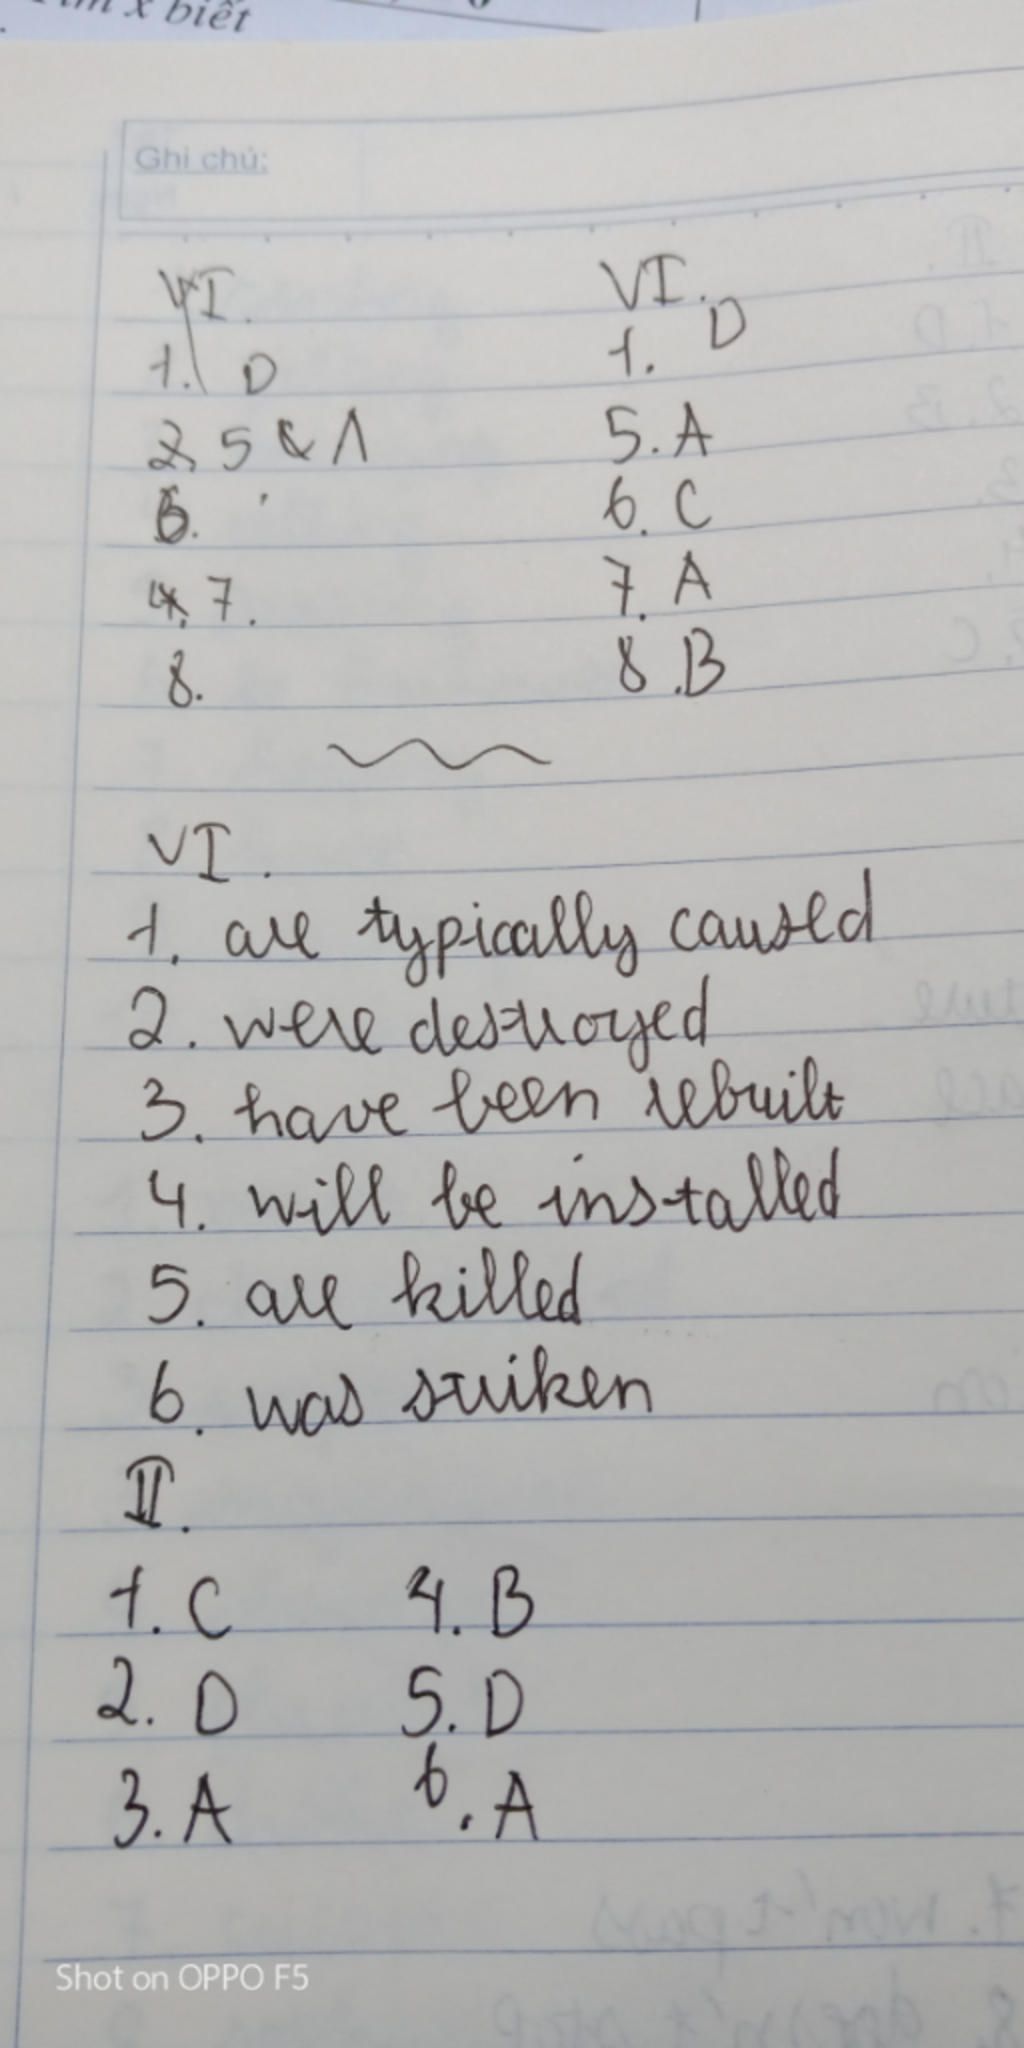 x biết
Ghi chú:
VI.
1. D
2. 5 & A
6.
4. 7.
8.
VI.
1. D
5. A
6. C
7. A
8. B
VI.
1. are typically caused
2. were destroyed
3. have been rebuilt
4. will be installed
5. are killed
6. was striken
II.
1. C
2. D
3. A
4. B
5. D
6. A
Shot on OPPO F5